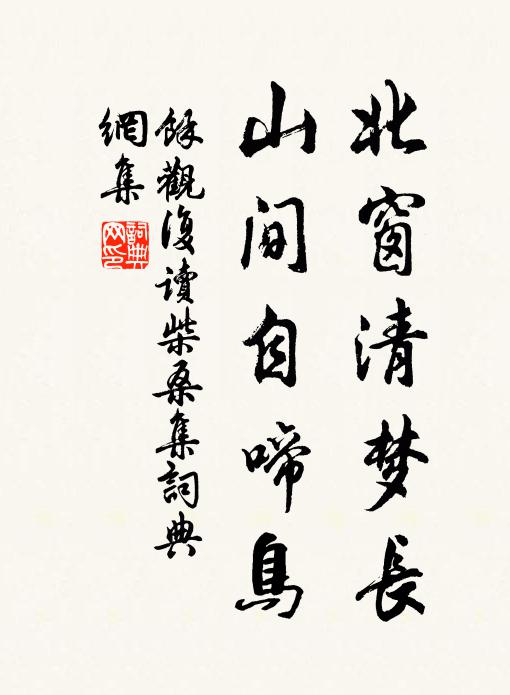 北窗清梦長
山间自啼鳥
餘觀復读柴桑集詞典
網集
詞典
网印